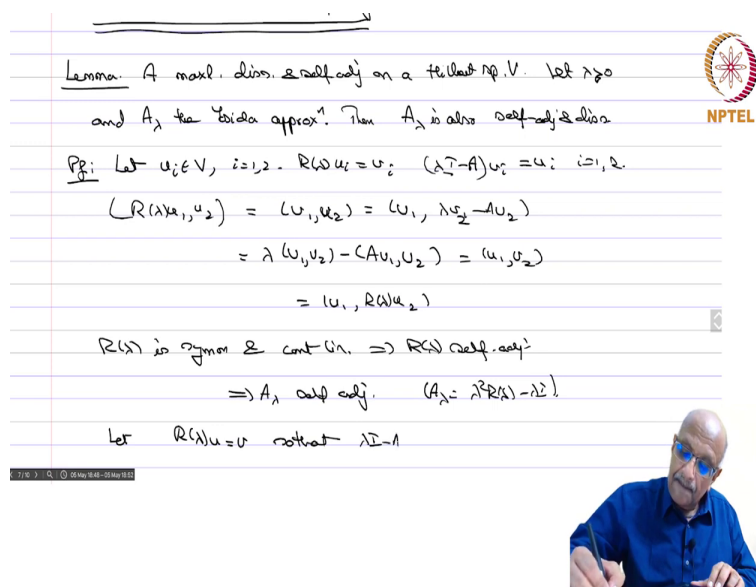 Lemma. A maxl. diss. & self adj on a Hilbert sp. V. Let λ>0
NPTEL
and A_λ the Yosida approxⁿ. Then A_λ is also self-adj & diss
Pf: Let u_i ∈ V, i=1,2. R(λ)u_i = v_i (λI-A)v_i = u_i i=1,2.
(R(λ)u_1, u_2) = (v_1, u_2) = (v_1, λv_2 - Av_2)
= λ(v_1, v_2) - (Av_1, v_2) = (u_1, v_2)
= (u_1, R(λ)u_2)
R(λ) is symm & cont lin. ⇒ R(λ) self-adj
⇒ A_λ self adj. (A_λ = λ²R(λ) - λI).
Let R(λ)u = v so that λI-A
7/10 05 May 18:48 - 05 May 18:52